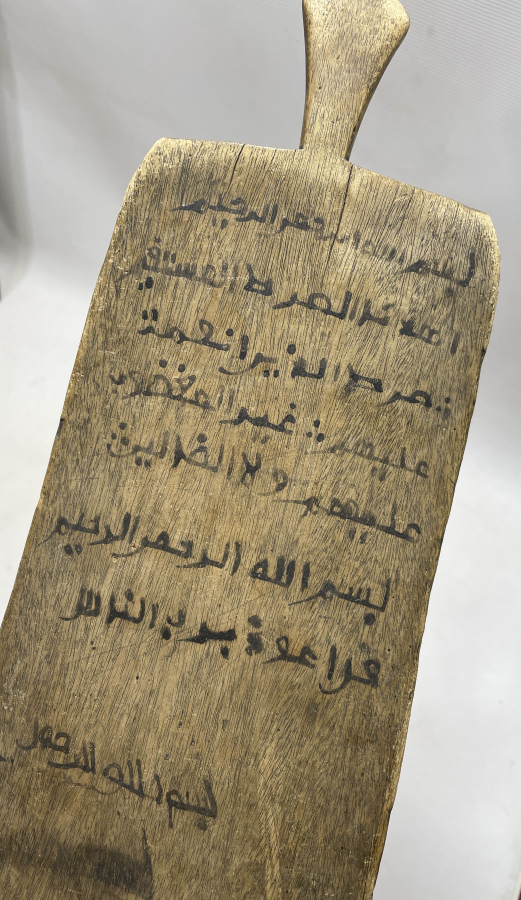 بسم الله الرحمن الرحيم
اهدنا الصرط المستقيم
صرط الذين انعمة
عليهم غير المغضوب
عليهم ولا الضالين
بسم الله الرحمن الرحيم
قل اعوذ برب الناس
بسم الله الرحمن